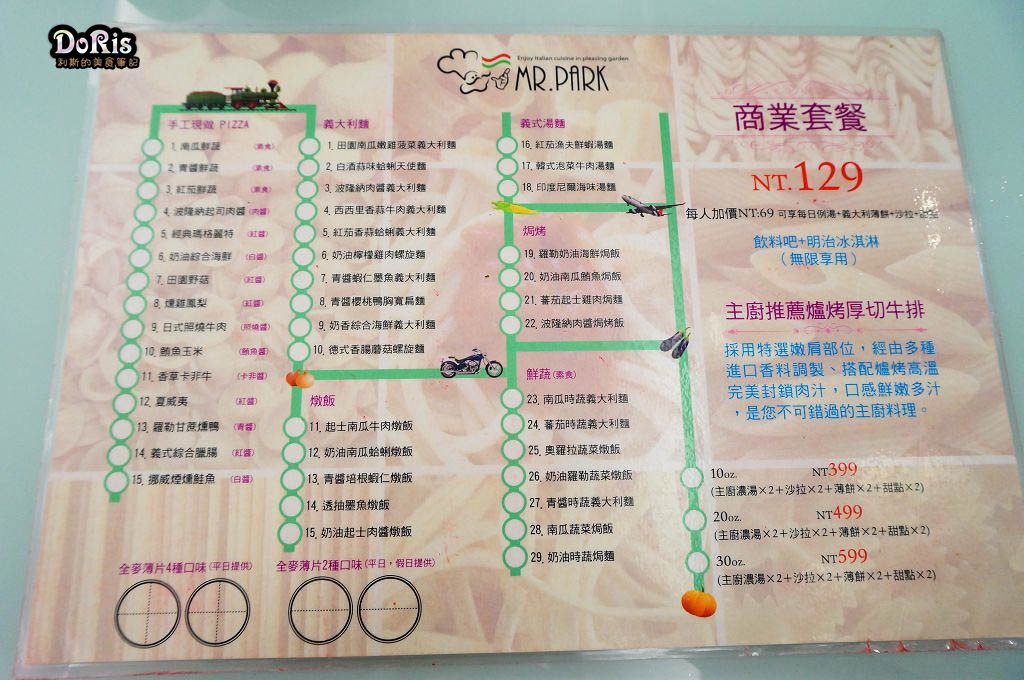 DoRis
利斯的美食筆記
Enjoy Italian cuisine in pleasing garden
MR.PARK
手工現做 PIZZA
1. 南瓜鮮蔬 (素食)
2. 青醬鮮蔬 (素食)
3. 紅茄鮮蔬 (素食)
4. 波隆納起司肉醬 (肉醬)
5. 經典瑪格麗特 (紅醬)
6. 奶油綜合海鮮 (白醬)
7. 田園野菇 (紅醬)
8. 燻雞鳳梨 (紅醬)
9. 日式照燒牛肉 (照燒醬)
10. 鮪魚玉米 (鮪魚醬)
11. 香草卡非牛 (卡非醬)
12. 夏威夷 (紅醬)
13. 羅勒甘蔗燻鴨 (青醬)
14. 義式綜合臘腸 (紅醬)
15. 挪威煙燻鮭魚 (白醬)
全麥薄片4種口味(平日提供)
全麥薄片2種口味(平日，假日提供)
義大利麵
1. 田園南瓜嫩雞菠菜義大利麵
2. 白酒蒜味蛤蜊天使麵
3. 波隆納肉醬義大利麵
4. 西西里香蒜牛肉義大利麵
5. 紅茄香蒜蛤蜊義大利麵
6. 奶油檸檬雞肉螺旋麵
7. 青醬蝦仁墨魚義大利麵
8. 青醬櫻桃鴨胸寬扁麵
9. 奶香綜合海鮮義大利麵
10. 德式香腸蘑菇螺旋麵
燉飯
11. 起士南瓜牛肉燉飯
12. 奶油南瓜蛤蜊燉飯
13. 青醬培根蝦仁燉飯
14. 透抽墨魚燉飯
15. 奶油起士肉醬燉飯
義式湯麵
16. 紅茄漁夫鮮蝦湯麵
17. 韓式泡菜牛肉湯麵
18. 印度尼爾海味湯麵
焗烤
19. 羅勒奶油海鮮焗飯
20. 奶油南瓜鮪魚焗飯
21. 蕃茄起士雞肉焗麵
22. 波隆納肉醬焗烤飯
鮮蔬(素食)
23. 南瓜時蔬義大利麵
24. 蕃茄時蔬義大利麵
25. 奧羅拉蔬菜燉飯
26. 奶油羅勒蔬菜燉飯
27. 青醬時蔬義大利麵
28. 南瓜蔬菜焗飯
29. 奶油時蔬焗麵
商業套餐
NT.129
每人加價NT:69 可享每日例湯+義大利薄餅+沙拉+甜點
飲料吧+明治冰淇淋
（無限享用）
主廚推薦爐烤厚切牛排
採用特選嫩肩部位，經由多種
進口香料調製、搭配爐烤高溫
完美封鎖肉汁，口感鮮嫩多汁
，是您不可錯過的主廚料理。
10oz. NT399
(主廚濃湯×2＋沙拉×2＋薄餅×2＋甜點×2)
20oz. NT499
(主廚濃湯×2＋沙拉×2＋薄餅×2＋甜點×2)
30oz. NT599
(主廚濃湯×2＋沙拉×2＋薄餅×2＋甜點×2)